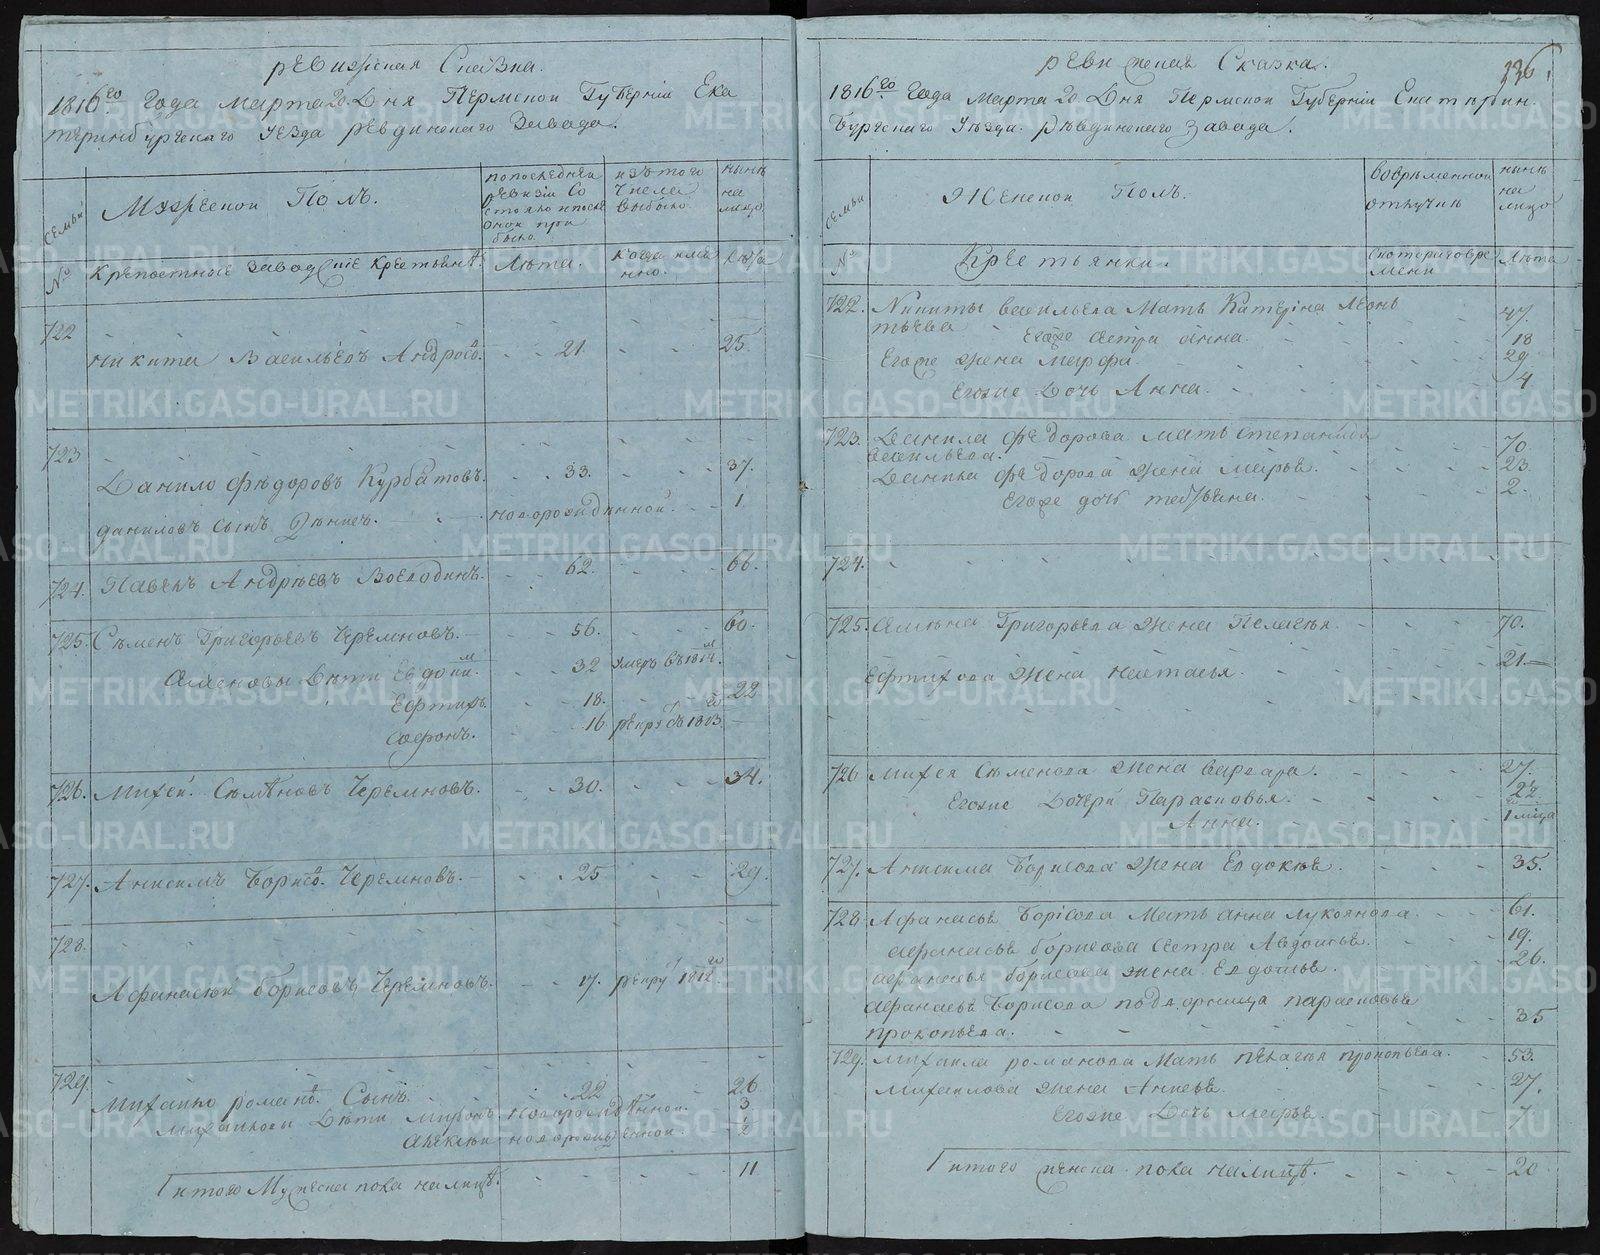 Ревизская Сказка.
1816го Года Марта 20. Дня Пермской Губернии Ека
теринбургскаго Уезда Ревдинскаго Завода.
Семьи
Мужеской Полъ.
по последней
ревизіи Со
стояло и после
оной при
было.
изъ того
числа
выбыло.
нынѣ
на
лицо
№
крепостные заводскіе крестьянѣ.
Лѣта.
когда имя
нно.
Лѣта
722
Никита Васильевъ Андросо. 21. 25.
723
Данило Фѣдоровъ Курбатовъ. 33. 37.
Даниловъ сынъ Дѣнисъ. новорожденной. 1.
724. Павелъ Андрѣевъ Воеводинъ. 62. 66.
725. Сѣменъ Григорьевъ Черемновъ. 56. 60.
Семеновы Дѣти Евдоким. 32 умеръ въ 1814м.
Ефтихъ. 18. 22
Софонъ. 16 рекру въ 1813го.
726. Михей Сѣмѣновъ Черемновъ. 30. 34.
727. Анисимъ Борисо. Черемновъ. 25 29.
728.
Афанасѣй Борисовъ Черемновъ. 17. рекру 1812го
729.
Михайло романо. Сынъ. 22 26
Михаиловы Дѣти Миронъ новорождѣнной. 3
Алексѣй новорожденной. 2
Итого Мужеска пола налицѣ. 11
336
Ревизская Сказка.
1816го Года Марта 20. Дня Пермской Губерніи Екатирин.
бургскаго Уѣзда. Рѣвдинскаго завода.
Семьи
Женской Полъ.
во врѣменной
отлучкѣ
нынѣ
на
лицо
№
Крестьянки.
Скотораго вре
мени
Лѣта
722. Никиты васильева Мать Катеріна Леонь
тьева 47.
Егоже сестра Анна. 18
Егоже жена Марфа 29
Егоже Дочь Анна. 4
723. Данила фѣдорова мать степанида
васильева. 70
Данила фѣдорова жена марья. 23.
Егоже дочь татьяна. 2.
724.
725. Семѣна Григорьева жена Пелагея. 70.
Ефтихова жена настасья. 21.
726 Михея Сѣменова жена варвара. 27.
Егоже Дочери Парасковья. 22
Анна. 1 мѣца
727. Анисима Борисова жена Евдокѣя. 35.
728. Афанасья Борісова Мать анна лукоянова. 61.
Афанасья борисова сестра Авдотья. 19.
Афанасья борисова жена Евдотья. 26.
Афанасья Борисова подворница парасковья
прокопьева. 35
729. Михаила романова Мать пелагѣя прокопьева. 53.
Михаилова жена Анисья. 27.
Егоже Дочь марья. 7
Итого женска пола налицѣ. 20
METRIKI.GASO-URAL.RU